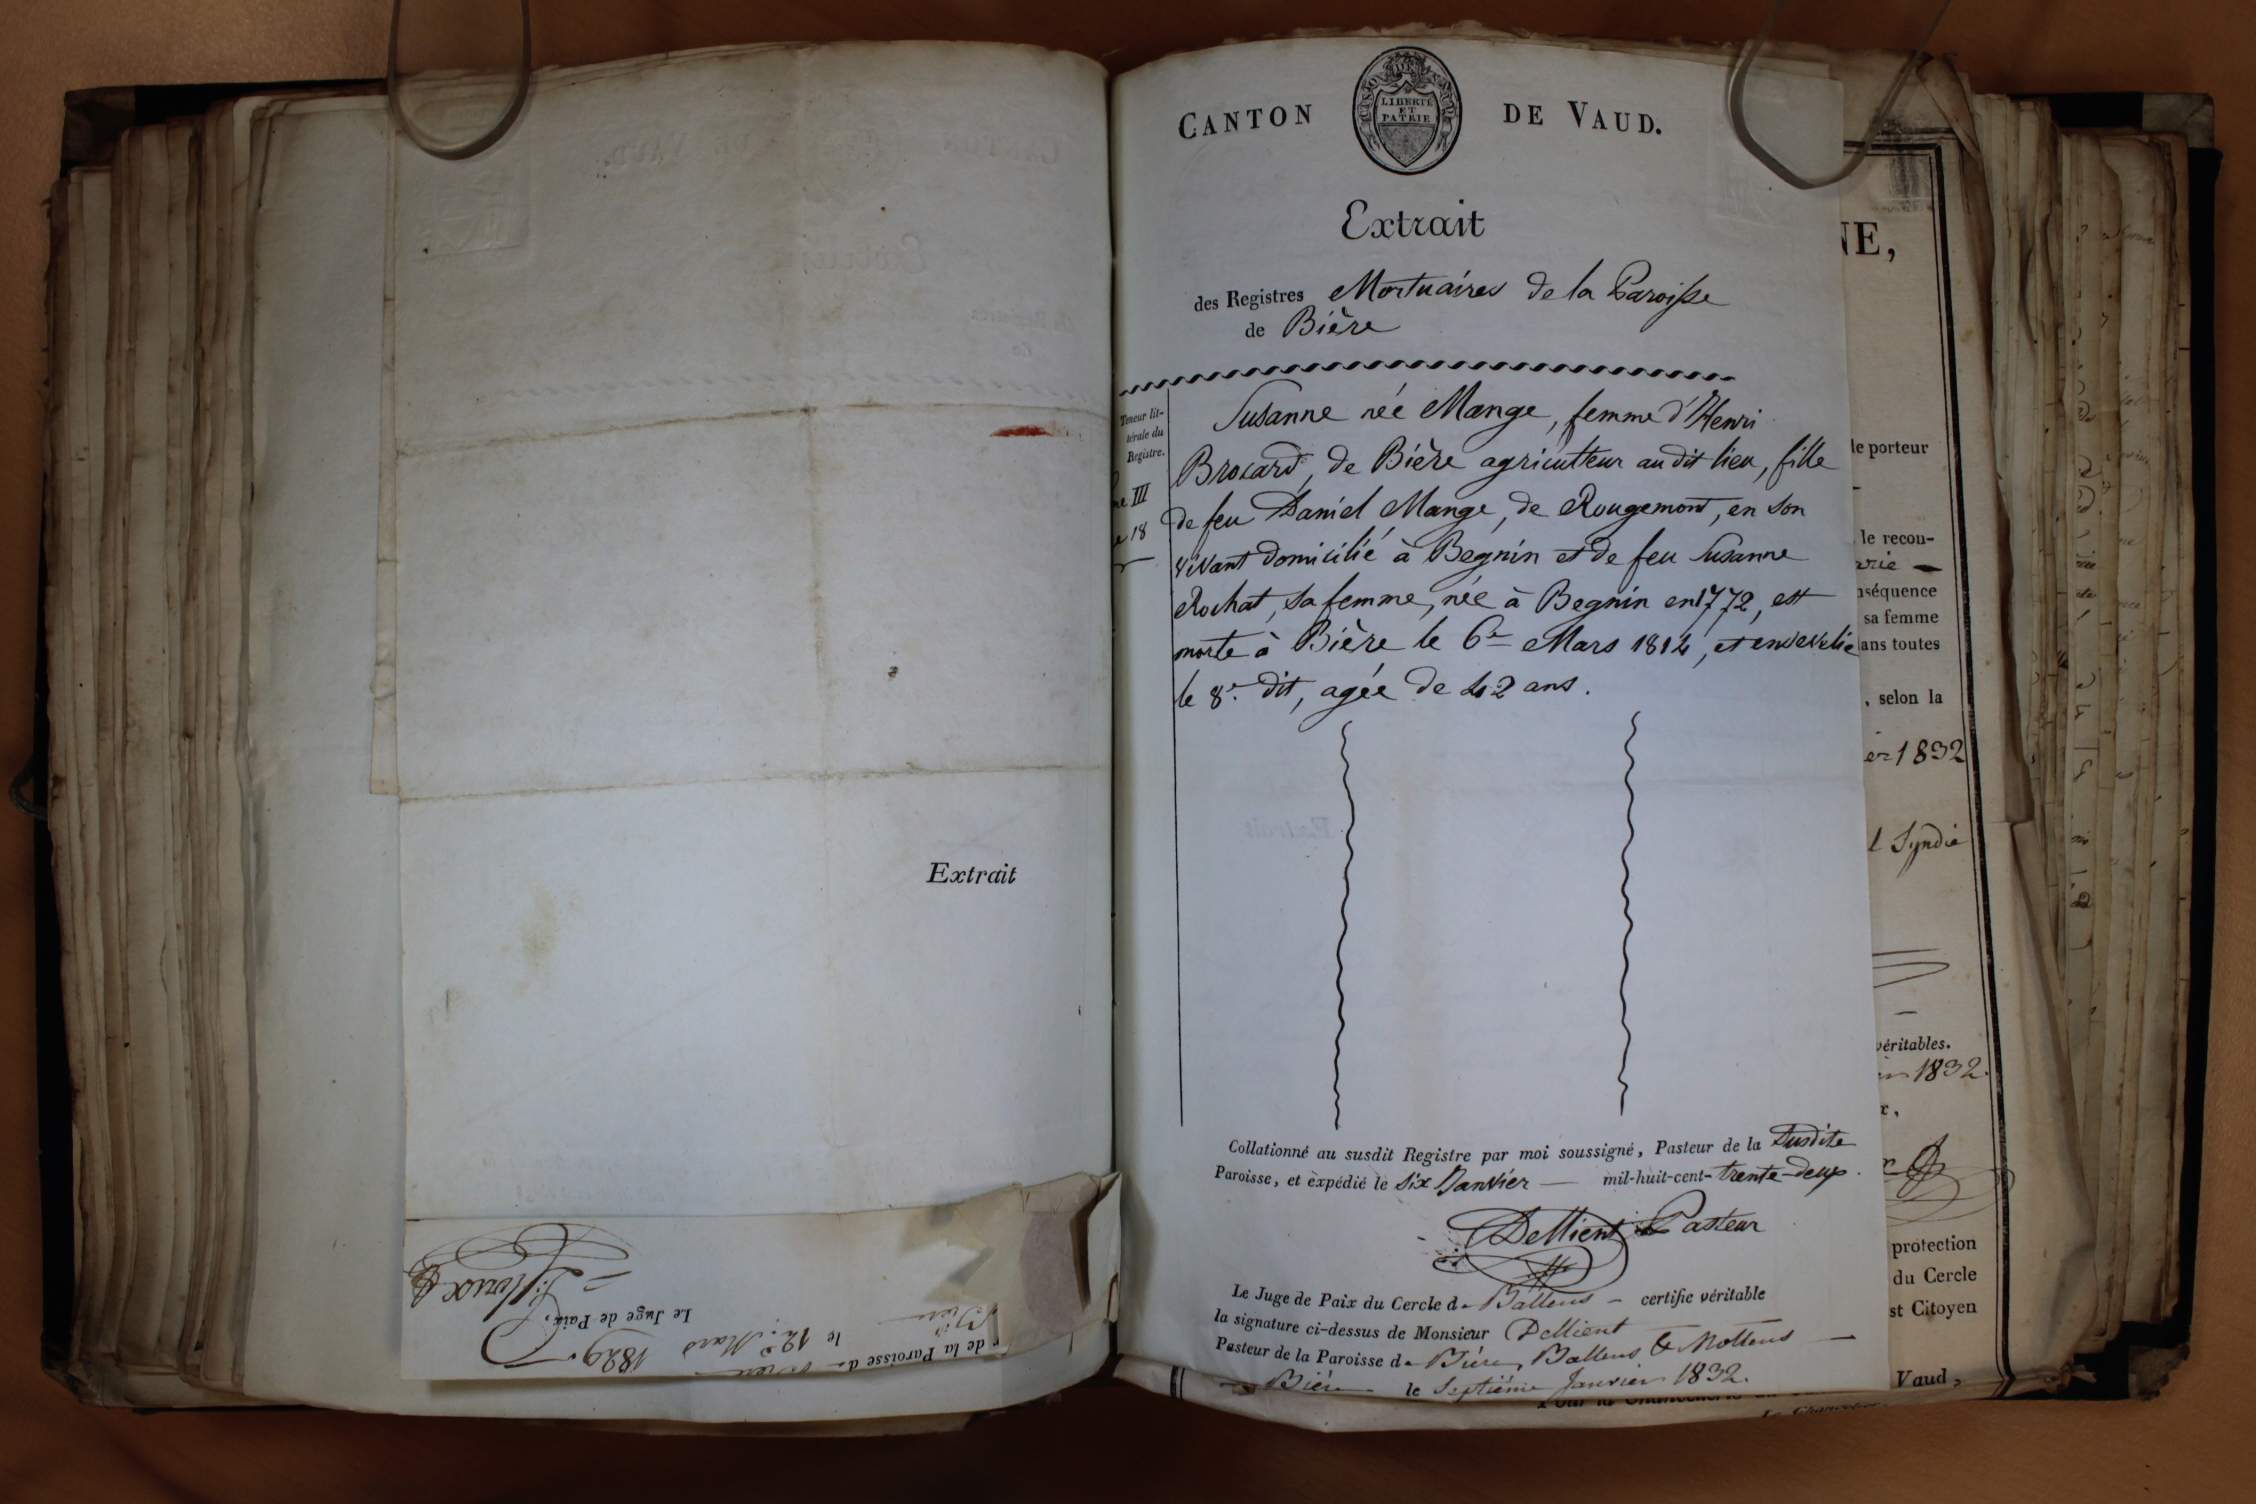 Extrait
r de la Paroisse de Bière
Bière le 12e Mars 1829.
Le Juge de Paix,
CANTON DE VAUD.
LIBERTÉ
ET
PATRIE
Extrait
des Registres Mortuaires de la Paroisse
de Bière
Teneur lit-
térale du
Registre.
III
18
Susanne née Mange, femme d'Henri
Brocard, de Bière agriculteur au dit lieu, fille
de feu Daniel Mange, de Rougemont, en son
vivant domicilié à Begnin et de feu Susanne
Rochat, sa femme, née à Begnin en 1772, est
morte à Bière le 6e Mars 1814, et ensevelie
le 8e. dit, agée de 42 ans.
Collationné au susdit Registre par moi soussigné, Pasteur de la susdite
Paroisse, et expédié le six Janvier — mil-huit-cent-trente-deux.
Dellient Pasteur
Le Juge de Paix du Cercle de Ballens — certifie véritable
la signature ci-dessus de Monsieur Dellient
Pasteur de la Paroisse de Bière, Ballens & Mollens —
Bière le Septième Janvier 1832.
NE,
le porteur
le recon-
arie —
nséquence
sa femme
ans toutes
, selon la
er 1832
l Syndic
véritables.
1832.
x,
protection
du Cercle
st Citoyen
Vaud,